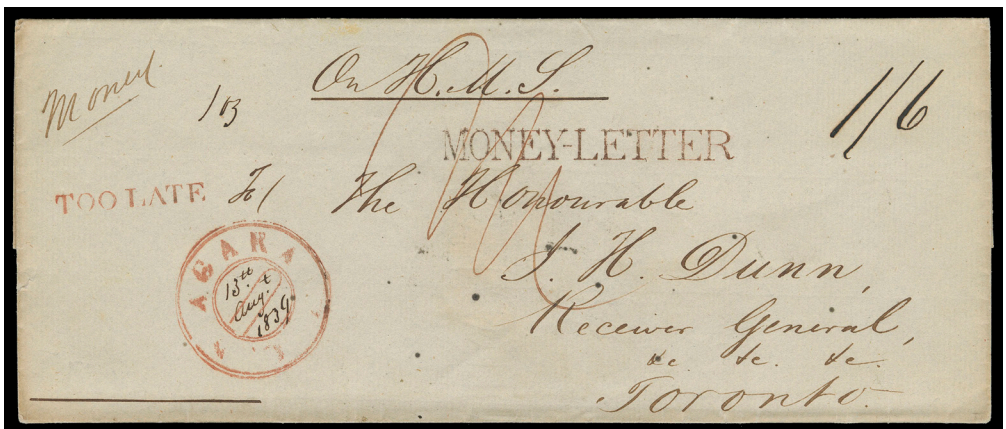 Money
On H. M. S.
1/6
MONEY-LETTER
TOO LATE
The Honourable
J. H. Dunn,
Receiver General,
&c. &c. &c.
Toronto.
NIAGARA
13th
Augt
1839